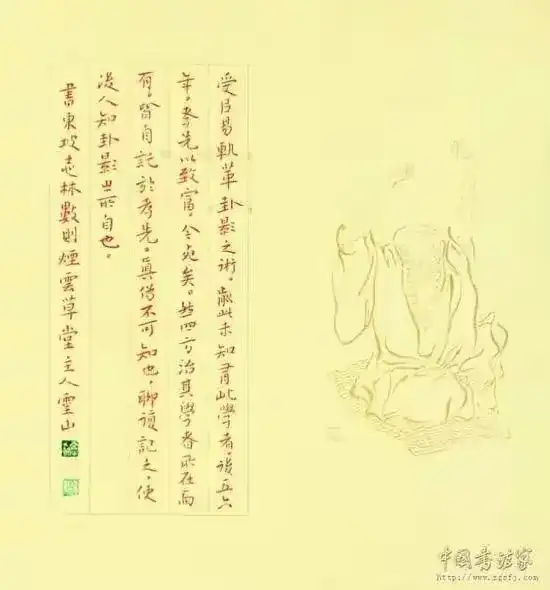 受㠯易軌革卦影之術。歬此未知有此學者。後五六
年。孝先以致富。今死矣。然四方治其學者所在而
有。皆自託於孝先。真偽不可知也。聊復記之。使
後人知卦影㞢所自也。
書東坡志林數則煙雲草堂主人靈山
中國書法家
http://www.zgsfj.com